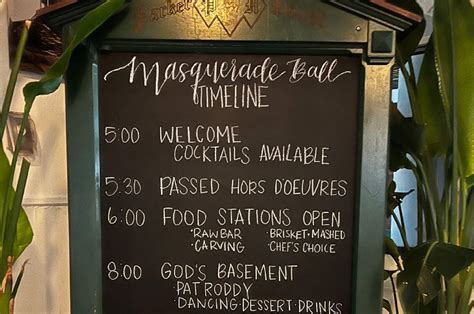 Masquerade Ball
TIMELINE
5:00 WELCOME
COCKTAILS AVAILABLE
5:30 PASSED HORS D'OEUVRES
6:00 FOOD STATIONS OPEN
·RAW BAR ·BRISKET·MASHED
·CARVING ·CHEF'S CHOICE
8:00 GOD'S BASEMENT
PAT RODDY
DANCING·DESSERT·DRINKS